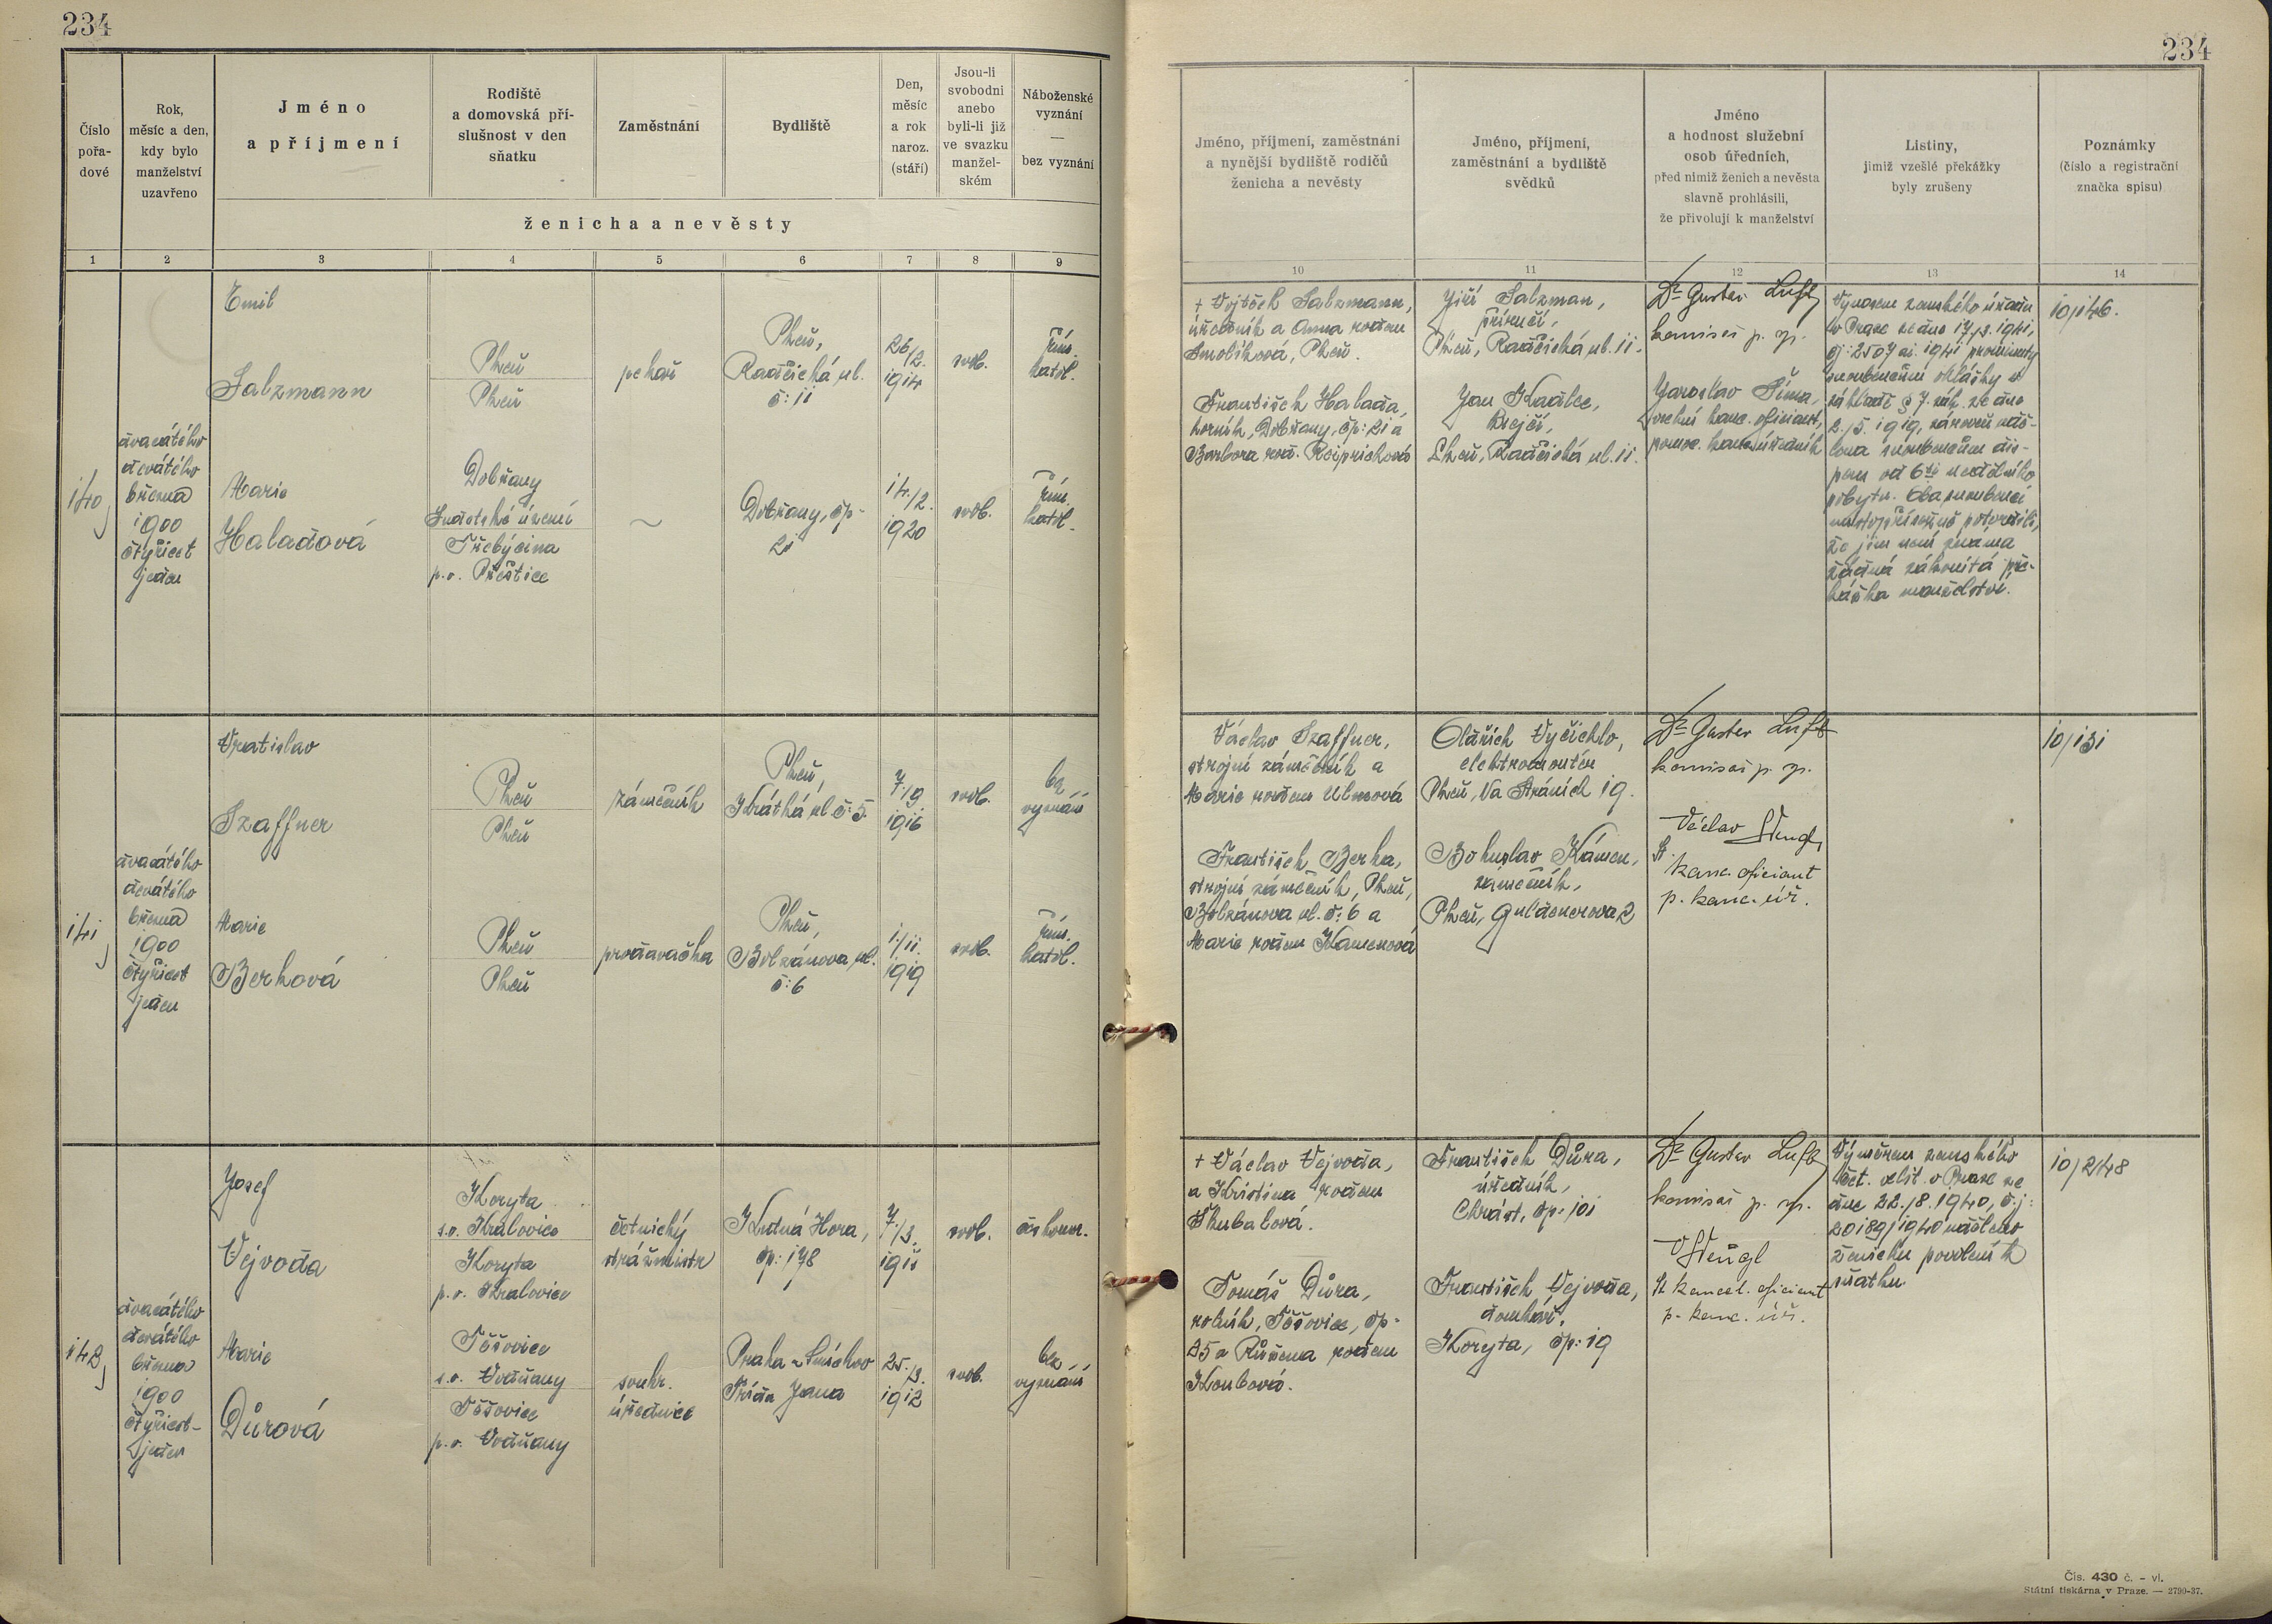 234
234
Číslo
pořa-
dové
Rok,
měsíc a den,
kdy bylo
manželství
uzavřeno
Jméno
a příjmení
Rodiště
a domovská pří-
slušnost v den
sňatku
Zaměstnání
Bydliště
Den,
měsíc
a rok
naroz.
(stáří)
Jsou-li
svobodni
anebo
byli-li již
ve svazku
manžel-
ském
Náboženské
vyznání
—
bez vyznání
ženicha a nevěsty
1 2 3 4 5 6 7 8 9
Jméno, příjmení, zaměstnání
a nynější bydliště rodičů
ženicha a nevěsty
Jméno, příjmení,
zaměstnání a bydliště
svědků
Jméno
a hodnost služební
osob úředních,
před nimiž ženich a nevěsta
slavně prohlásili,
že přivolují k manželství
Listiny,
jimiž vzešlé překážky
byly zrušeny
Poznámky
(číslo a registrační
značka spisu)
10 11 12 13 14
140
dvacátého
devátého
března
1900
čtyřicet
jeden
Emil
Salzmann
Plzeň
Plzeň
pekař
Plzeň,
Radčická ul.
č: 11
26/2.
1914
svob.
řím.
katol.
Marie
Haladová
Dobřany
Sudetské území
Třebýcina
p. o. Přeštice
~
Dobřany, čp-
21
14./2.
1920
svob.
řím.
katol.
+ Vojtěch Salzmann,
úředník a Anna rodem
Smolíková, Plzeň.
František Halada,
horník, Dobřany, čp: 21 a
Barbora rod. Rciprichová
Jiří Salzman,
příručí,
Plzeň, Radčická ul. 11.
Jan Kadlec,
krejčí,
Plzeň, Radčická ul. 11.
Dr Gustav Luft
komisař p. s.
Jaroslav Šíma,
vrchní kanc. oficiant,
pomoc. kanc. úředník
Výnosem zemského úřadu
v Praze ze dne 17./3. 1941,
čj: 2507 ai. 1941 prominuty
snoubencům ohlášky
základě § 7. zák. ze dne
2./5. 1919, zároveň udě-
lena snoubencům dis-
pens od 6ti nedělního
pobytu. Oba snoubenci
místopřísežně potvrdili,
že jim není známa
žádná zákonitá pře-
kážka manželství.
10/146.
141
dvacátého
devátého
března
1900
čtyřicet
jeden
Vratislav
Szaffner
Plzeň
Plzeň
zámečník
Plzeň,
Krátká ul č: 5.
7./9.
1916
svob.
bez
vyznání
Marie
Berková
Plzeň
Plzeň
prodavačka
Plzeň,
Bolzánova ul.
č: 6
1./11.
1919
svob.
řím.
katol.
Václav Szaffner,
strojní zámečník a
Marie rodem Ulmová
František Berka,
strojní zámečník, Plzeň,
Bolzánova ul. č: 6 a
Marie rodem Kamenová
Oldřich Vyčichlo,
elektromontér
Plzeň, Na Stráních 19.
Bohuslav Kámen,
zámečník,
Plzeň, Guldenerova 2
Dr Gustav Luft
komisař p. s.
Václav Štengl,
st.
kanc. oficiant
p. kanc. úř.
10/131
142
dvacátého
devátého
března
1900
čtyřicet-
jeden
Josef
Vejvoda
Koryta
s. o. Kralovice
Koryta
p. o. Kralovice
četnický
strážmistr
Kutná Hora,
čp: 178
7./3.
1911
svob.
českomor.
Marie
Důrová
Těšovice
s. o. Vodňany
Těšovice
p. o. Vodňany
soukr.
úřednice
Praha - Smíchov
Třída Jana
25./3.
1912
svob.
bez
vyznání
+ Václav Vejvoda,
a Kristina rodem
Škubalová.
Tomáš Důra,
rolník, Těšovice, čp-
25 a Růžena rodem
Koubová.
František Důra,
úředník,
Chrást, čp: 101
František Vejvoda,
domkář,
Koryta, čp: 19
Dr Gustav Luft
komisař p. s.
V Štengl
st. kancel. oficiant
p. kanc. úř.
Výměrem zemského
čet. velit. v Praze ze
dne 22./8. 1940, č.j:
20189/1940 uděleno
ženichu povolení k
sňatku
10/248
Čís. 430 č. - vl.
Státní tiskárna v Praze. — 2790-37.